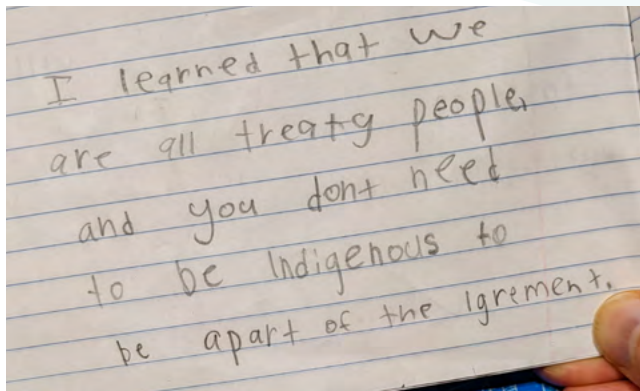 I learned that we
are all treaty people,
and you dont need
to be Indigenous to
be apart of the igrement.